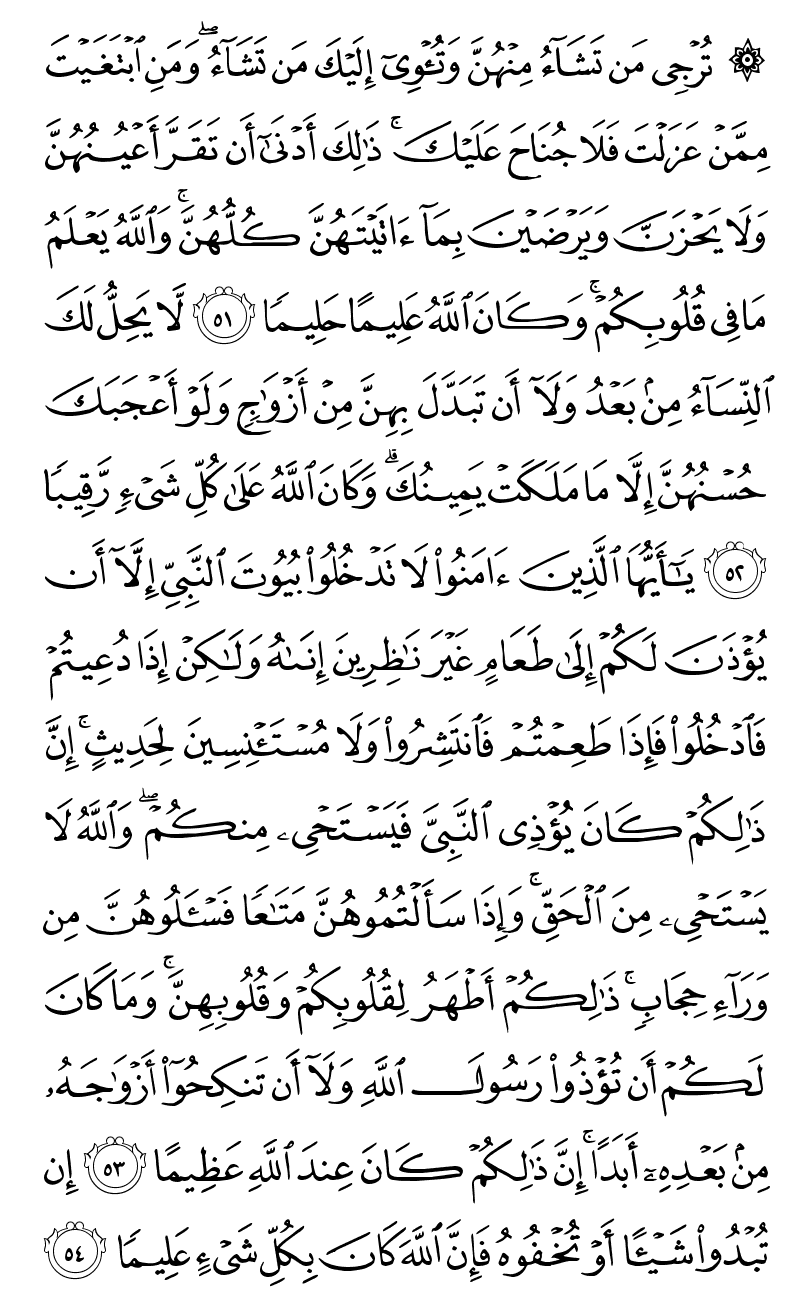 ۞ تُرْجِى مَن تَشَآءُ مِنْهُنَّ وَتُـْٔوِىٓ إِلَيْكَ مَن تَشَآءُ ۖ وَمَنِ ٱبْتَغَيْتَ
مِمَّنْ عَزَلْتَ فَلَا جُنَاحَ عَلَيْكَ ۚ ذَٰلِكَ أَدْنَىٰٓ أَن تَقَرَّ أَعْيُنُهُنَّ
وَلَا يَحْزَنَّ وَيَرْضَيْنَ بِمَآ ءَاتَيْتَهُنَّ كُلُّهُنَّ ۚ وَٱللَّهُ يَعْلَمُ
مَا فِى قُلُوبِكُمْ ۚ وَكَانَ ٱللَّهُ عَلِيمًا حَلِيمًا ٥١ لَّا يَحِلُّ لَكَ
ٱلنِّسَآءُ مِنۢ بَعْدُ وَلَآ أَن تَبَدَّلَ بِهِنَّ مِنْ أَزْوَٰجٍ وَلَوْ أَعْجَبَكَ
حُسْنُهُنَّ إِلَّا مَا مَلَكَتْ يَمِينُكَ ۗ وَكَانَ ٱللَّهُ عَلَىٰ كُلِّ شَىْءٍ رَّقِيبًا
٥٢ يَـٰٓأَيُّهَا ٱلَّذِينَ ءَامَنُوا۟ لَا تَدْخُلُوا۟ بُيُوتَ ٱلنَّبِىِّ إِلَّآ أَن
يُؤْذَنَ لَكُمْ إِلَىٰ طَعَامٍ غَيْرَ نَـٰظِرِينَ إِنَىٰهُ وَلَـٰكِنْ إِذَا دُعِيتُمْ
فَٱدْخُلُوا۟ فَإِذَا طَعِمْتُمْ فَٱنتَشِرُوا۟ وَلَا مُسْتَـْٔنِسِينَ لِحَدِيثٍ ۚ إِنَّ
ذَٰلِكُمْ كَانَ يُؤْذِى ٱلنَّبِىَّ فَيَسْتَحْىِۦ مِنكُمْ ۖ وَٱللَّهُ لَا
يَسْتَحْىِۦ مِنَ ٱلْحَقِّ ۚ وَإِذَا سَأَلْتُمُوهُنَّ مَتَـٰعًا فَسْـَٔلُوهُنَّ مِن
وَرَآءِ حِجَابٍ ۚ ذَٰلِكُمْ أَطْهَرُ لِقُلُوبِكُمْ وَقُلُوبِهِنَّ ۚ وَمَا كَانَ
لَكُمْ أَن تُؤْذُوا۟ رَسُولَ ٱللَّهِ وَلَآ أَن تَنكِحُوٓا۟ أَزْوَٰجَهُۥ
مِنۢ بَعْدِهِۦٓ أَبَدًا ۚ إِنَّ ذَٰلِكُمْ كَانَ عِندَ ٱللَّهِ عَظِيمًا ٥٣ إِن
تُبْدُوا۟ شَيْـًٔا أَوْ تُخْفُوهُ فَإِنَّ ٱللَّهَ كَانَ بِكُلِّ شَىْءٍ عَلِيمًا ٥٤